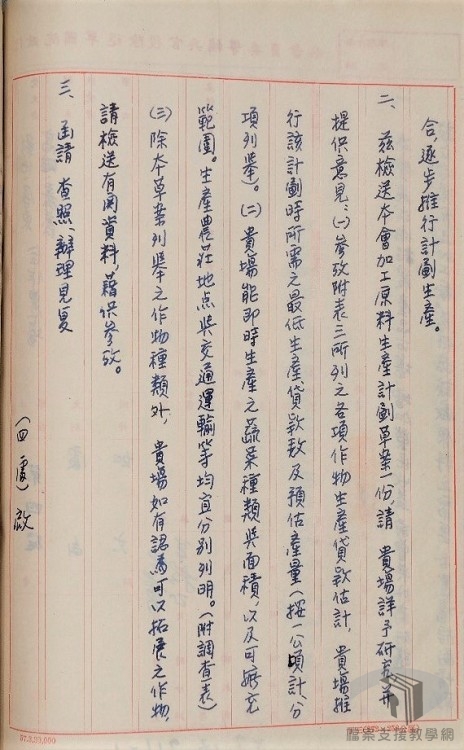 合，逐步推行計劃生產。
二、茲檢送本會加工原料生產計劃草案一份，請　貴場詳予研究並
提供意見：(一)參攷附表三所列之各項作物生產貸款估計，貴場推
行該計劃時所需之最低生產貸款數及預估產量（按一公頃計，分
項列舉）。(二)貴場能即時生產之蔬菜種類與面積，以及可擴充
範圍。生產農莊地点與交通運輸等均宜分別列明。（附調查表）
(三)除本草案列舉之作物種類外，貴場如有認為可以拓展之作物，
請檢送有関資料，藉供參攷。
三、函請　查照、辦理見复
（四處）啟
57.3.30,000
檔案支援教學網